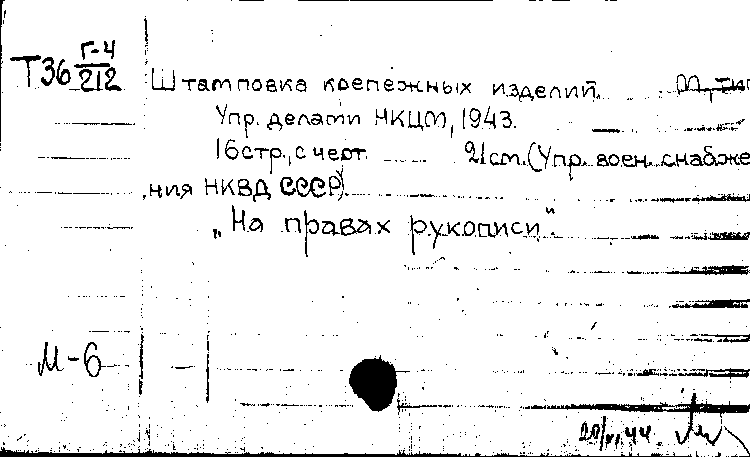 Т36 Г-4/212
Штамповка крепежных изделий. М., тип
Упр. делами НКЦМ, 1943.
16стр., с черт. 21см. (Упр. воен. снабже
ния НКВД СССР)
„На правах рукописи".
М-6